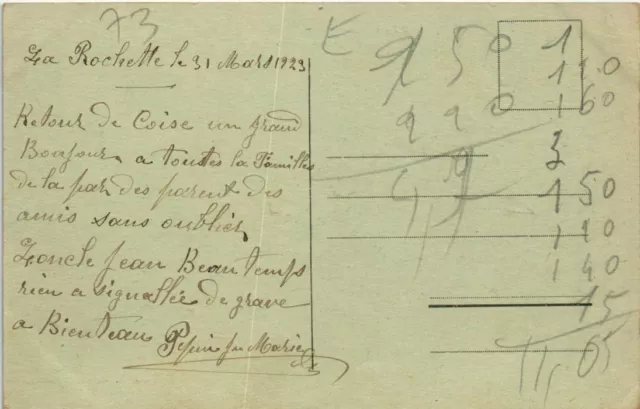 73
La Rochette le 31 Mars 1923
Retour de Coise un grand
Bonjour a toutes la Familles
de la par des parent des
amis sans oublier
Loncle Jean Beau temps
rien a signallée de grave
a Bienteau
E 9 50 1
110
990 160
3
150
110
140
15
11,05